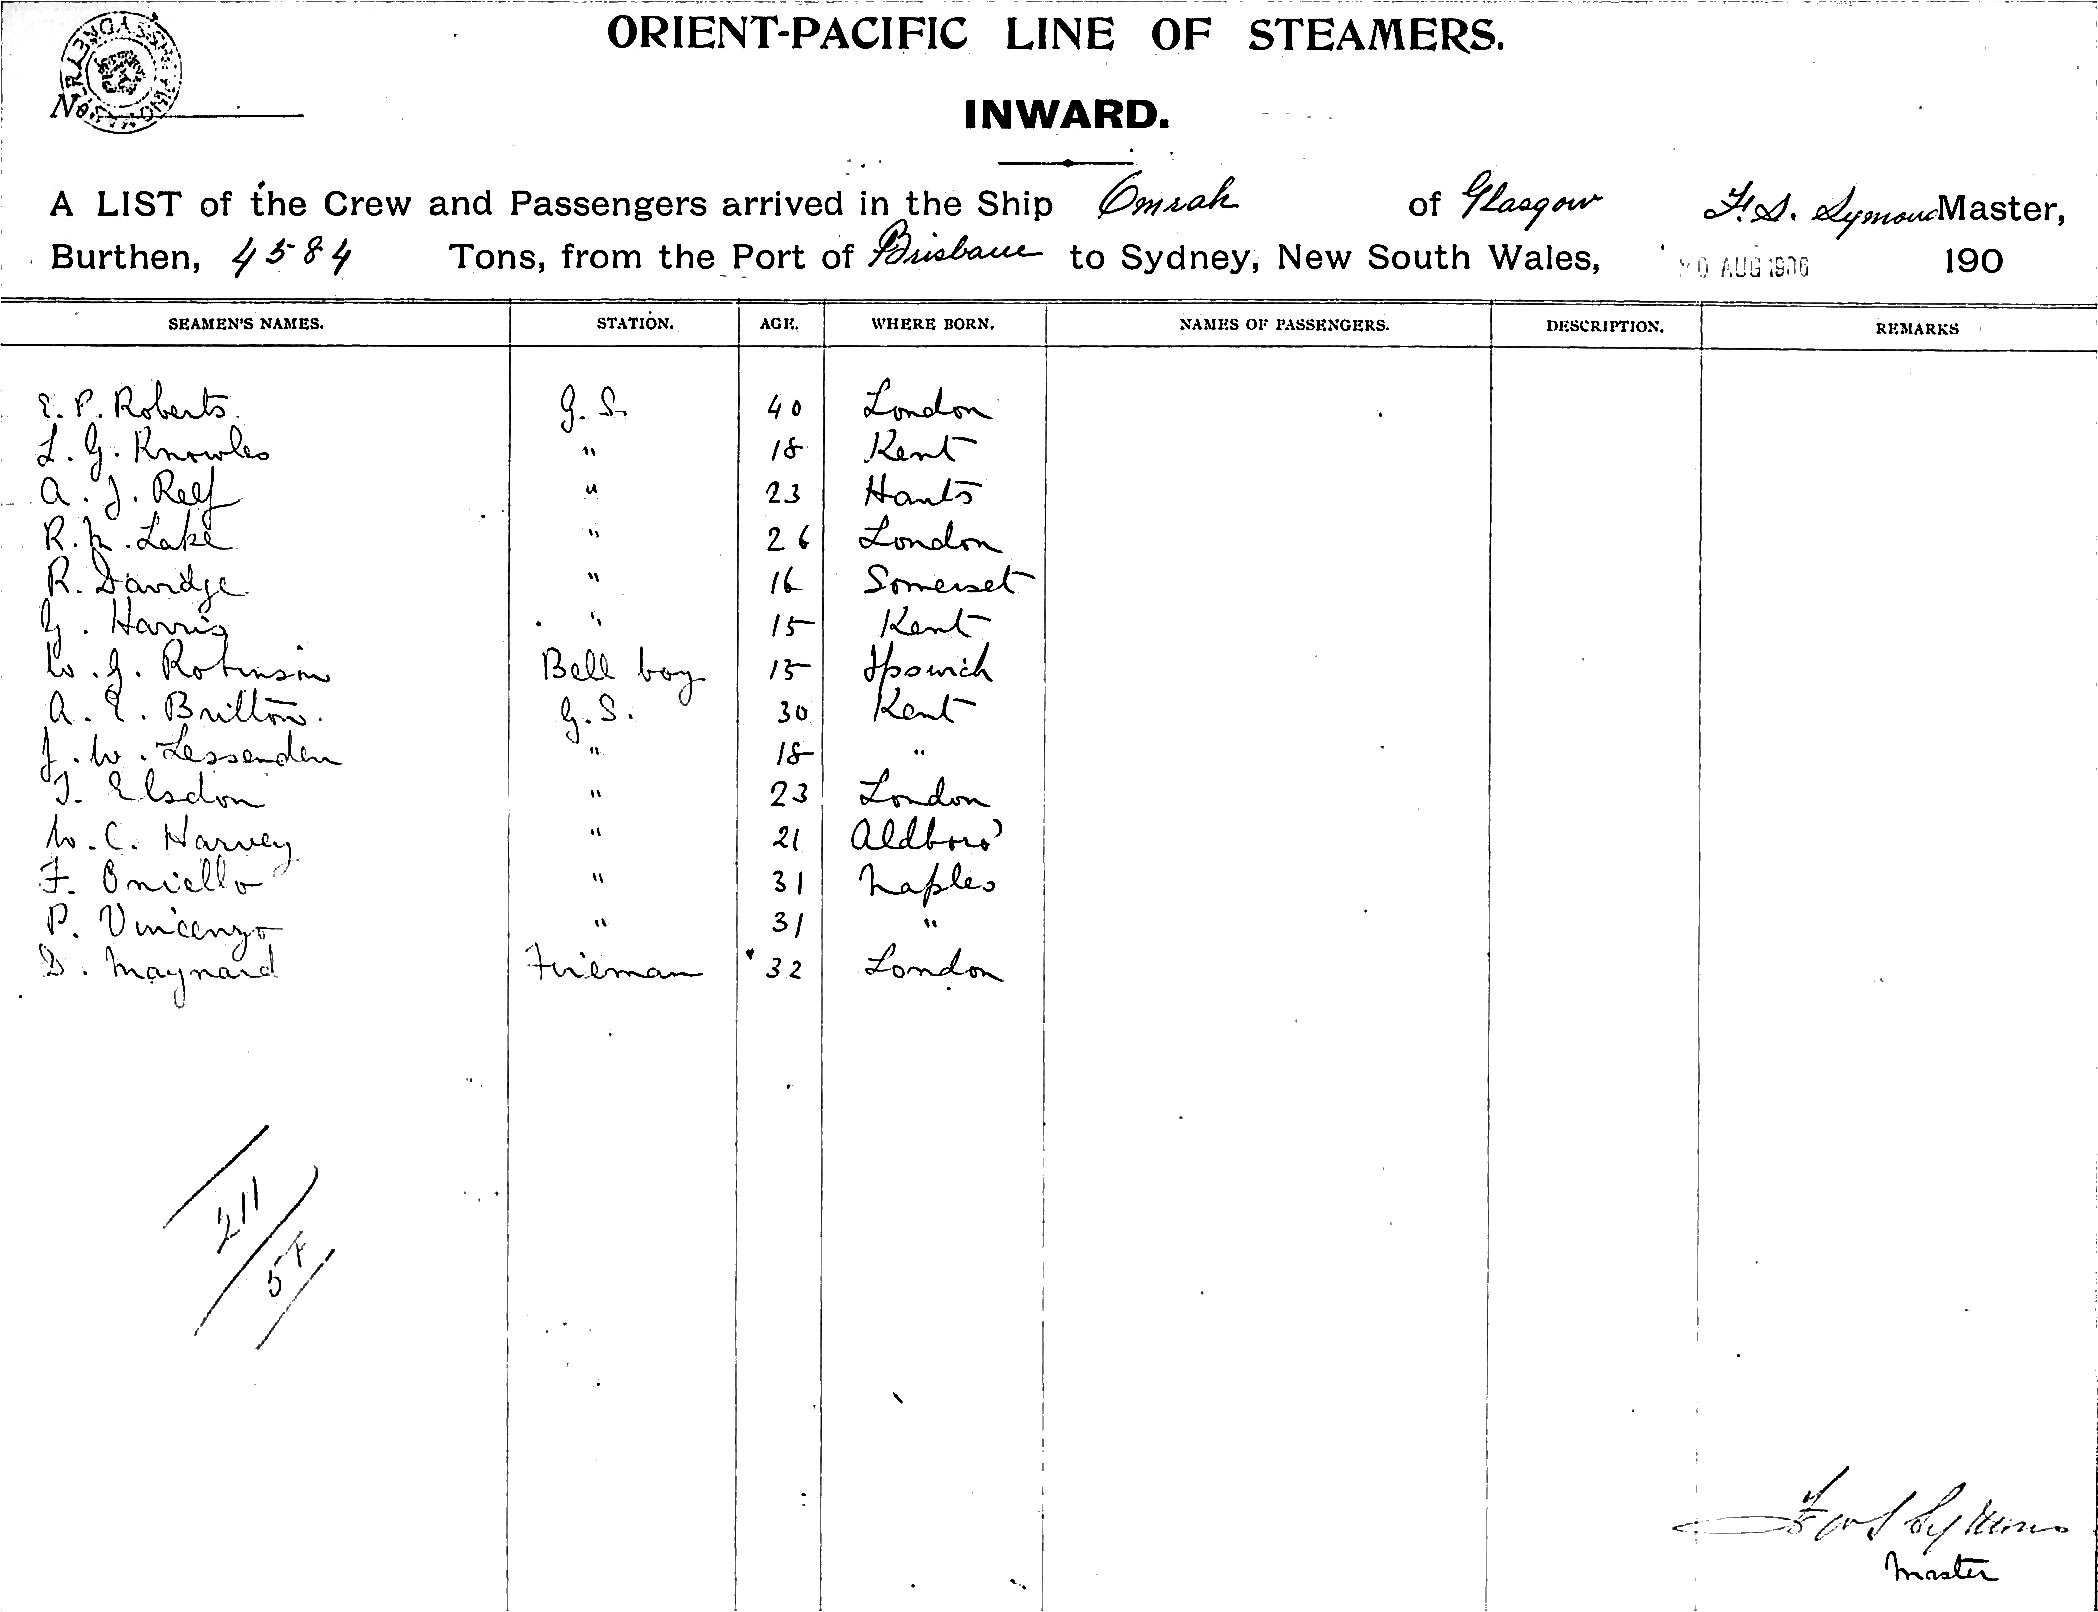 ORIENT-PACIFIC LINE OF STEAMERS.
No.
INWARD.
A LIST of the Crew and Passengers arrived in the Ship Omrah of Glasgow F. S. Symons Master,
Burthen, 4584 Tons, from the Port of Brisbane to Sydney, New South Wales, AUG 1906 190
SEAMEN'S NAMES. STATION. AGE. WHERE BORN. NAMES OF PASSENGERS. DESCRIPTION. REMARKS
E. P. Roberts. G. S. 40 London
L. G. Knowles " 18 Kent
A. J. Relf " 23 Hants
R. N. Lake " 26 London
R. Davidge " 16 Somerset
G. Harris " 15 Kent
W. J. Robinson Bell boy 15 Ipswich
A. E. Britton. G. S. 30 Kent
J. W. Lessenden " 18 "
T. Elsdon " 23 London
W. C. Harvey " 21 Aldboro'
F. Oniello " 31 Naples
P. Vincenzo " 31 "
D. Maynard Fireman 32 London
211
Symons
Master